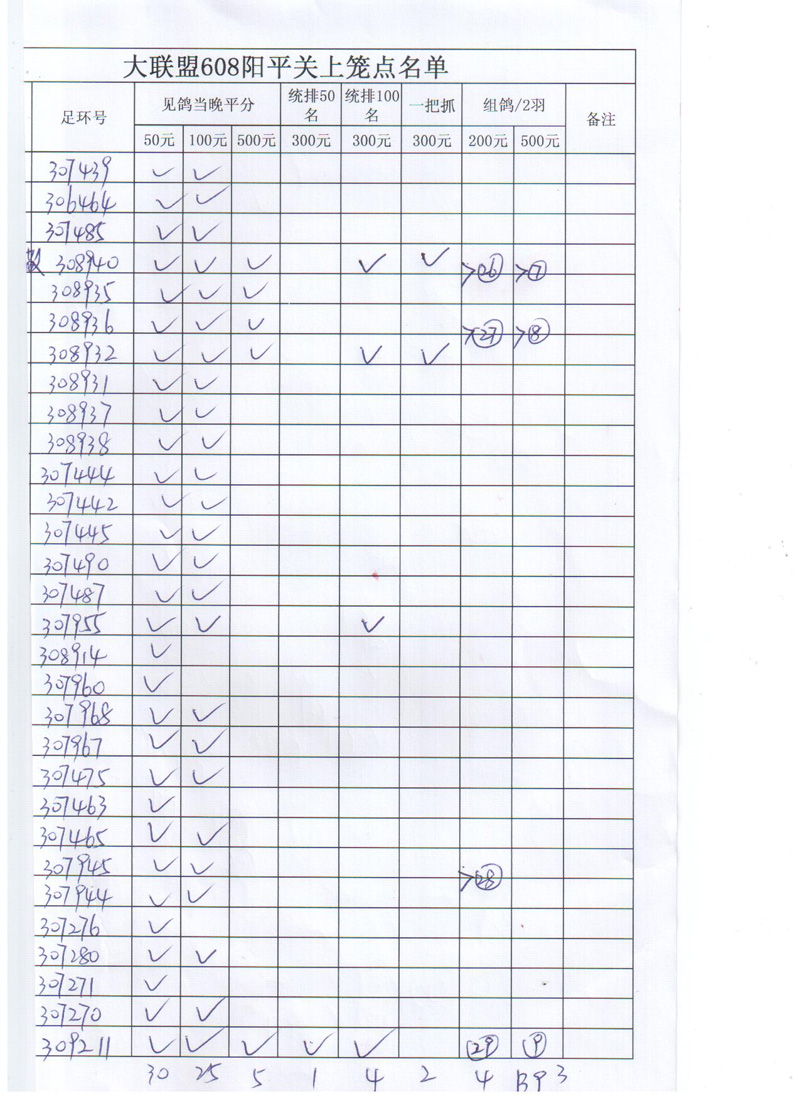 大联盟608阳平关上笼点名单
足环号 见鸽当晚平分 统排50名 统排100名 一把抓 组鸽/2羽 备注
50元 100元 500元 300元 300元 300元 200元 500元
307439 ✓ ✓
306464 ✓ ✓
307485 ✓ ✓
308940 ✓ ✓ ✓ ✓ ✓ >26 >7
308935 ✓ ✓ ✓
308936 ✓ ✓ ✓ >27 >8
308932 ✓ ✓ ✓ ✓ ✓
308931 ✓ ✓
308937 ✓ ✓
308938 ✓ ✓
307444 ✓ ✓
307442 ✓ ✓
307445 ✓ ✓
307490 ✓ ✓
307487 ✓ ✓
307955 ✓ ✓ ✓
308914 ✓
307960 ✓
307968 ✓ ✓
307967 ✓ ✓
307475 ✓ ✓
307463 ✓
307465 ✓ ✓
307945 ✓ ✓ >28
307944 ✓ ✓
307276 ✓
307280 ✓ ✓
307271 ✓
307270 ✓ ✓
309211 ✓ ✓ ✓ ✓ ✓ 29 9
30 25 5 1 4 2 4 3